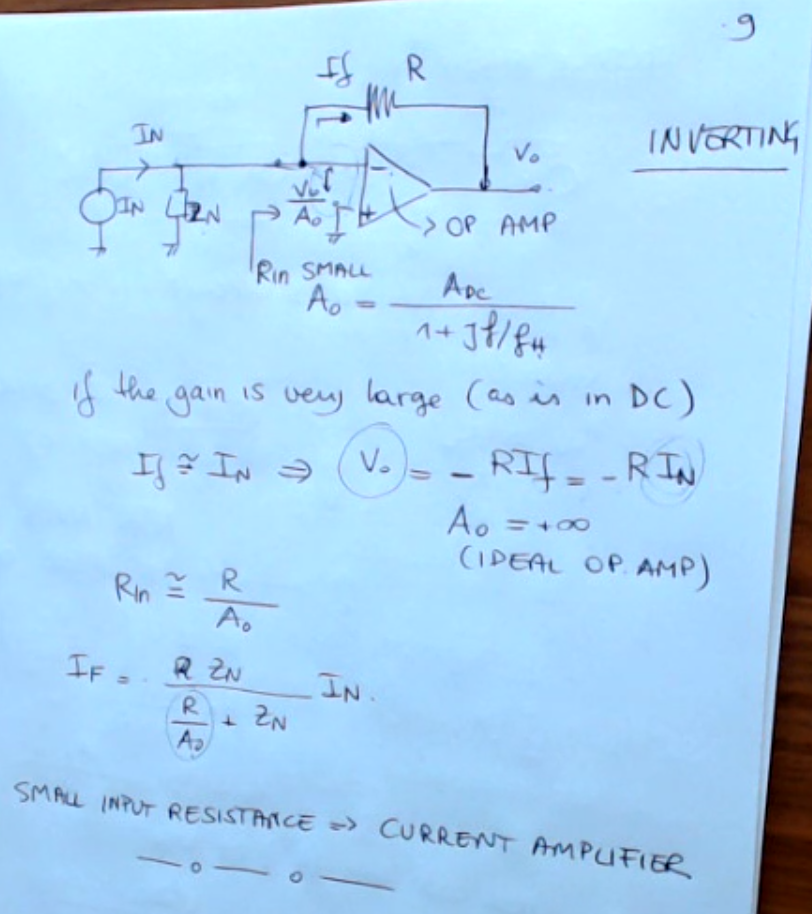 .9
If R
IN
Vo
INVERTING
IN ZN
Vo/Ao
- +
> OP AMP
Rin SMALL
Ao = ADC / 1+Jf/fH
if the gain is very large (as is in DC)
If ≅ IN ⇒ Vo = - RIf = - RIN
Ao = +∞
(IDEAL OP. AMP)
Rin ≅ R / Ao
IF = R ZN / R/Ao + ZN IN.
SMALL INPUT RESISTANCE => CURRENT AMPLIFIER